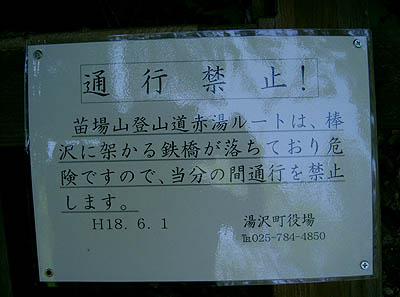 通行禁止!
苗場山登山道赤湯ルートは、棒
沢に架かる鉄橋が落ちており危
険ですので、当分の間通行を禁止
します。
H18.6.1
湯沢町役場
℡025-784-4850